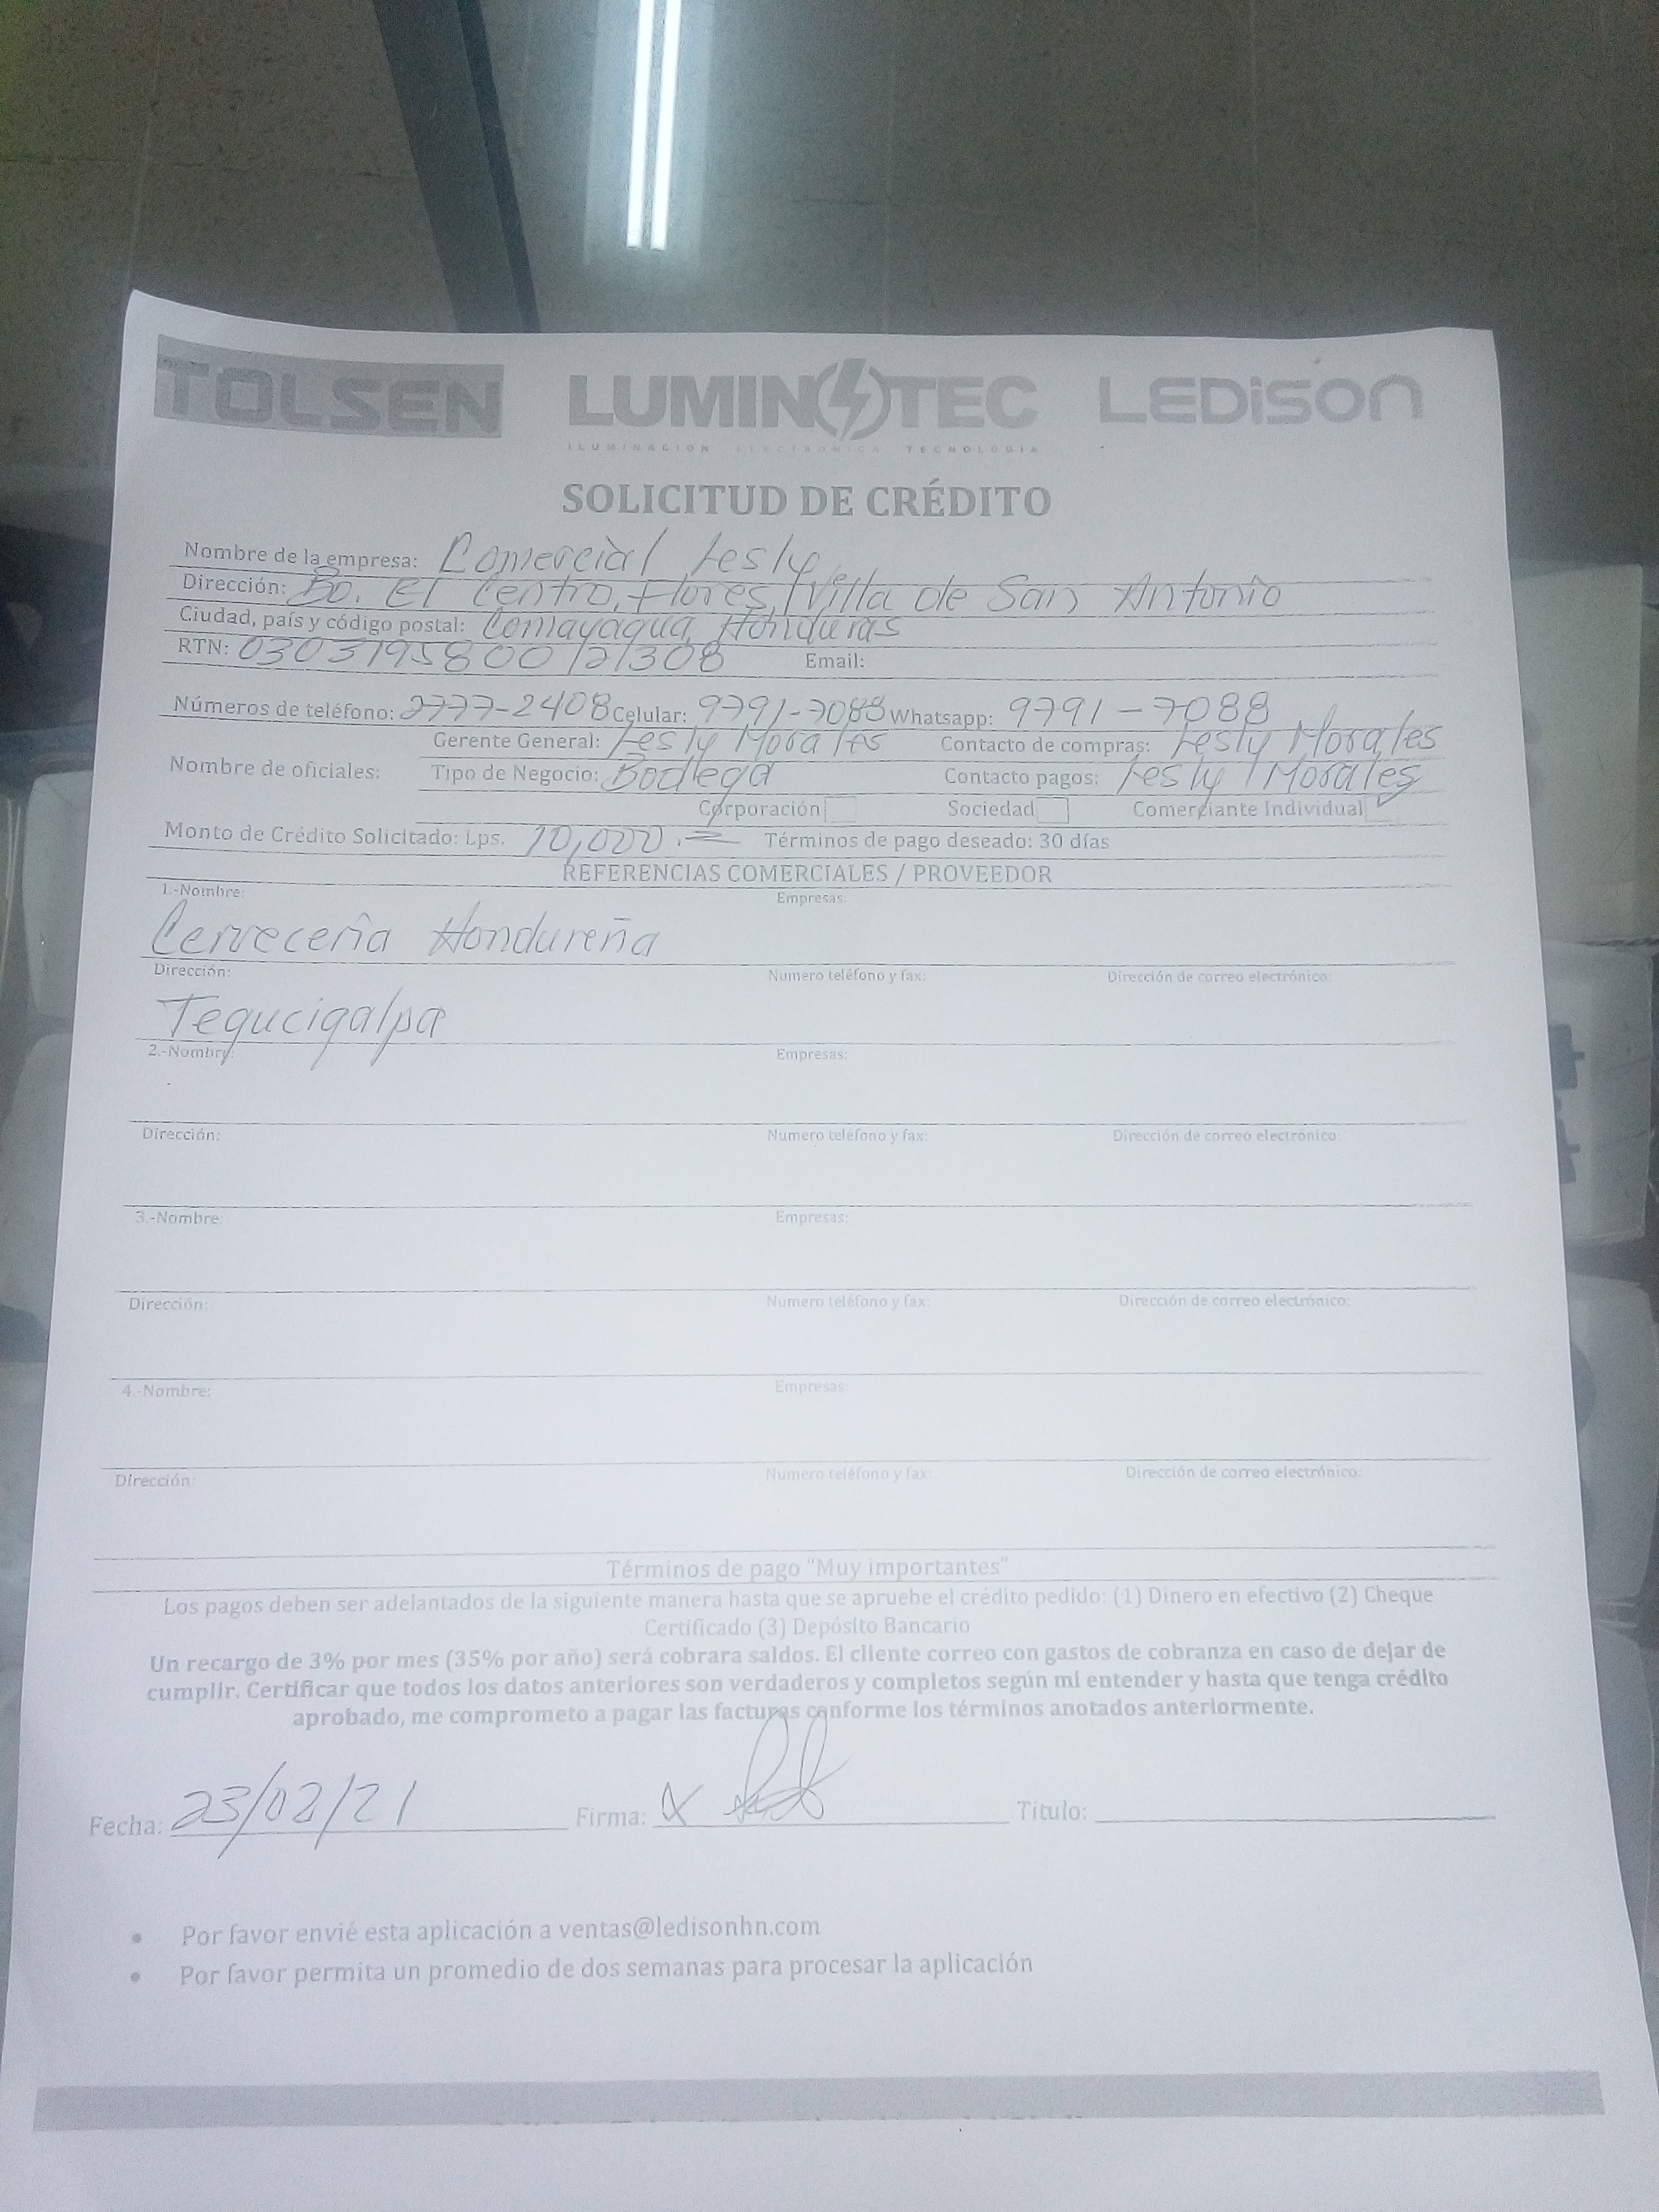 TOLSEN LUMINOTEC LEDiSON
ILUMINACION ELECTRONICA TECNOLOGIA
SOLICITUD DE CRÉDITO
Nombre de la empresa: Comercial Lesly
Dirección: Bo. El Centro, Flores, Villa de San Antonio
Ciudad, país y código postal: Comayagua, Honduras
RTN: Email:
Números de teléfono: 2777-2408 Celular: 9791-7088 Whatsapp: 9791-7088
Gerente General: Lesly Morales Contacto de compras: Lesly Morales
Nombre de oficiales: Tipo de Negocio: Bodega Contacto pagos: Lesly Morales
Corporación Sociedad Comerciante Individual
Monto de Crédito Solicitado: Lps. 10,000.= Términos de pago deseado: 30 días
REFERENCIAS COMERCIALES / PROVEEDOR
1.-Nombre: Empresas:
Cervecería Hondureña
Dirección: Numero teléfono y fax: Dirección de correo electrónico:
Tegucigalpa
2.-Nombre: Empresas:
Dirección: Numero teléfono y fax: Dirección de correo electrónico:
3.-Nombre: Empresas:
Dirección: Numero teléfono y fax: Dirección de correo electrónico:
4.-Nombre: Empresas:
Dirección: Numero teléfono y fax: Dirección de correo electrónico:
Términos de pago "Muy importantes"
Los pagos deben ser adelantados de la siguiente manera hasta que se apruebe el crédito pedido: (1) Dinero en efectivo (2) Cheque
Certificado (3) Depósito Bancario
Un recargo de 3% por mes (35% por año) será cobrara saldos. El cliente correo con gastos de cobranza en caso de dejar de
cumplir. Certificar que todos los datos anteriores son verdaderos y completos según mi entender y hasta que tenga crédito
aprobado, me comprometo a pagar las facturas conforme los términos anotados anteriormente.
Fecha: 23/02/21 Firma: x Titulo:
• Por favor envié esta aplicación a ventas@ledisonhn.com
• Por favor permita un promedio de dos semanas para procesar la aplicación